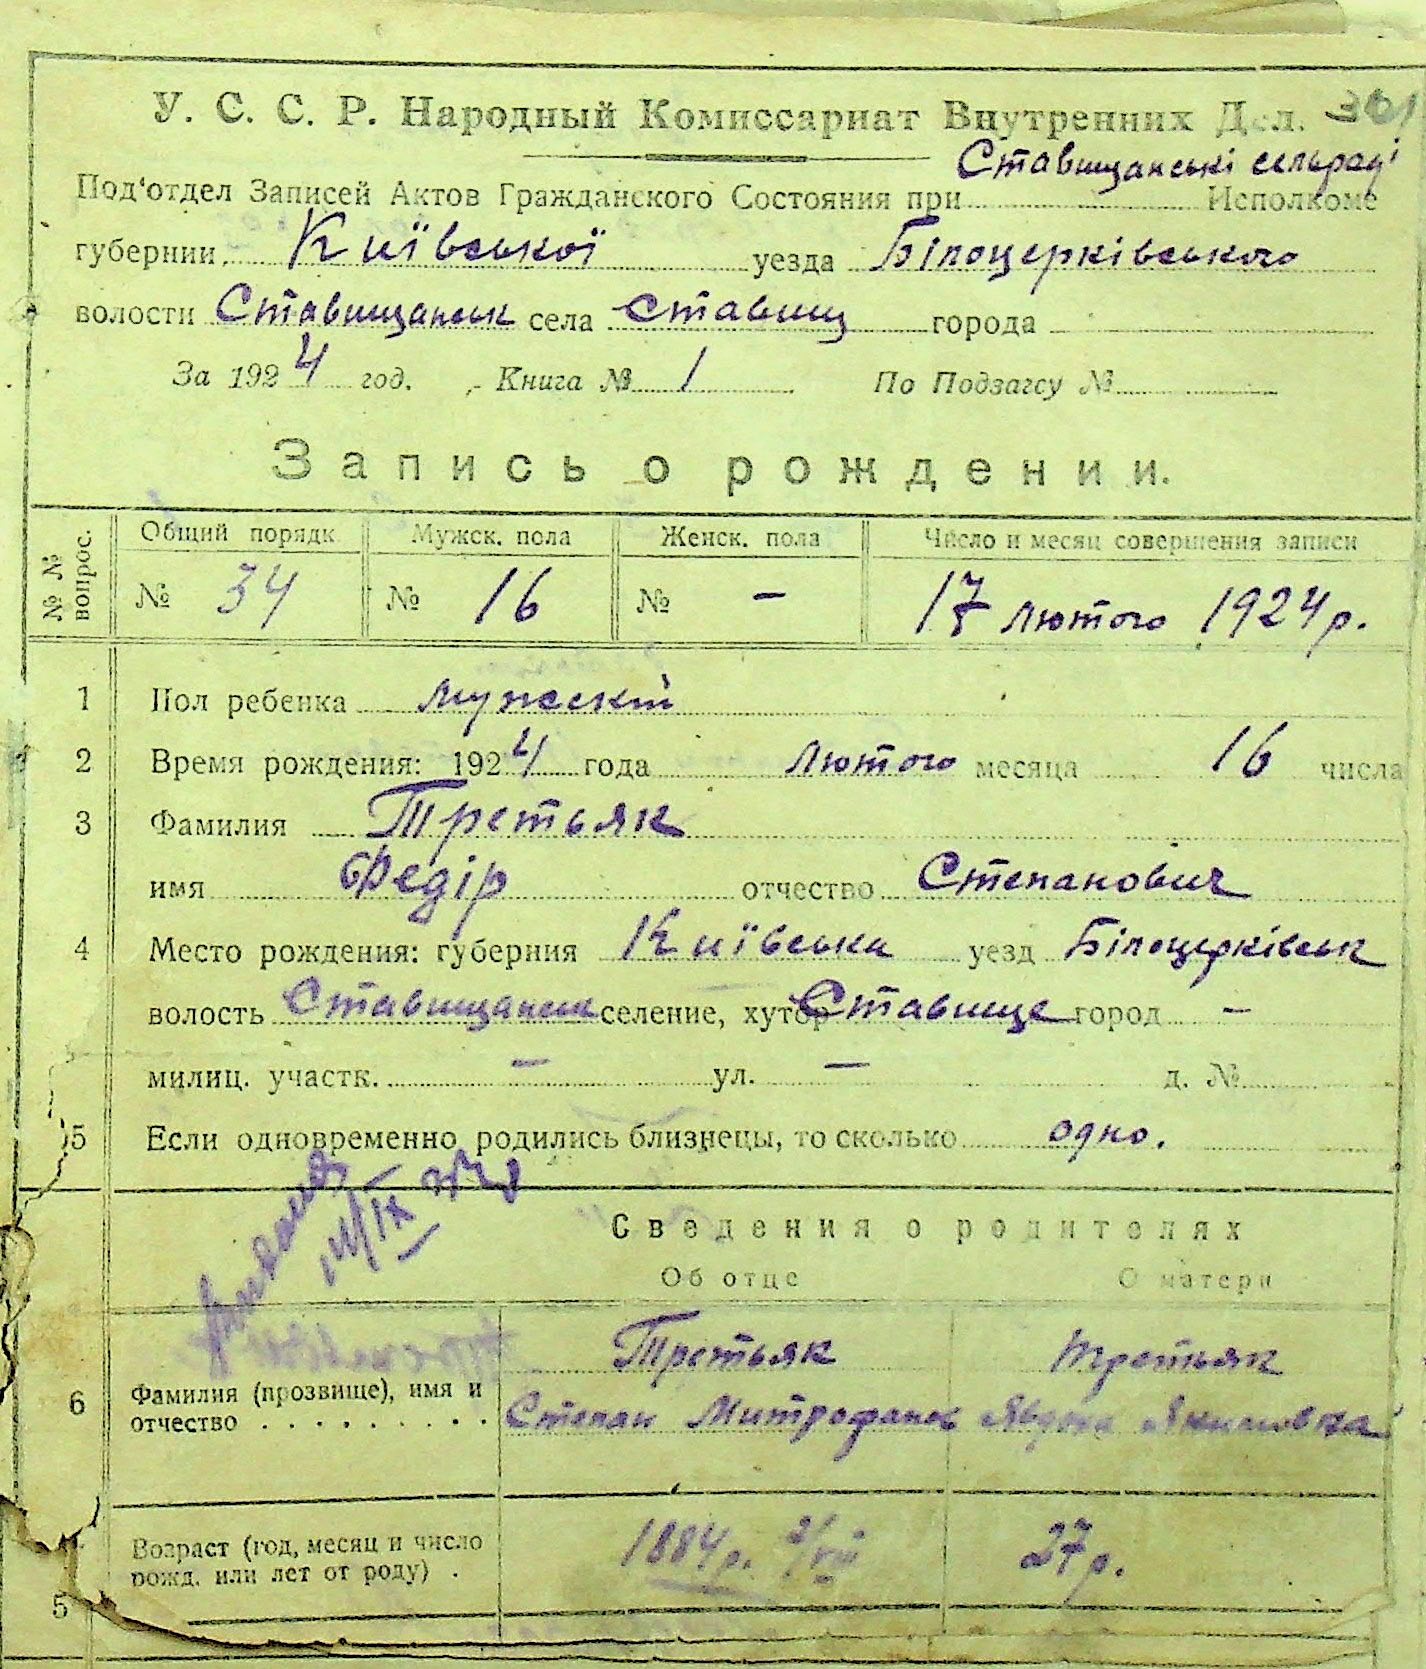 У. С. С. Р. Народный Комиссариат Внутренних Дел. 301
Ставищанські сельраді
Под'отдел Записей Актов Гражданского Состояния при Исполкоме
губернии Київської уезда Білоцерківського
волости Ставищанськ села Ставищ города
За 1924 год. Книга № 1 По Подзагсу №
Запись о рождении.
№ № вопрос. Общий порядк Мужск. пола Женск. пола Число и месяц совершения записи
№ 34 № 16 № – 17 Лютого 1924 р.
1 Пол ребенка мужескій
2 Время рождения: 1924 года Лютого месяца 16 числа
3 Фамилия Третьяк
имя Федір отчество Степанович
4 Место рождения: губерния Київська уезд Білоцерківськ
волость Ставищанськ селение, хутор Ставище город –
милиц. участк. – ул. – д. №
5 Если одновременно родились близнецы, то сколько одно.
Сведения о родителях
Об отце О матери
Третьяк Третьяк
6 Фамилия (прозвище), имя и
отчество . . . . . . . . . Степан Митрофанов Явдоха Якимовна
Возраст (год, месяц и число
рожд. или лет от роду) . 1884 р. 27 р.
5